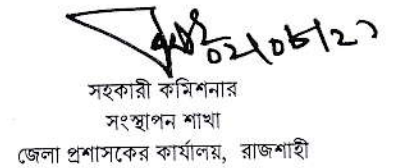 সহকারী কমিশনার
সংস্থাপন শাখা
জেলা প্রশাসকের কার্যালয়, রাজশাহী